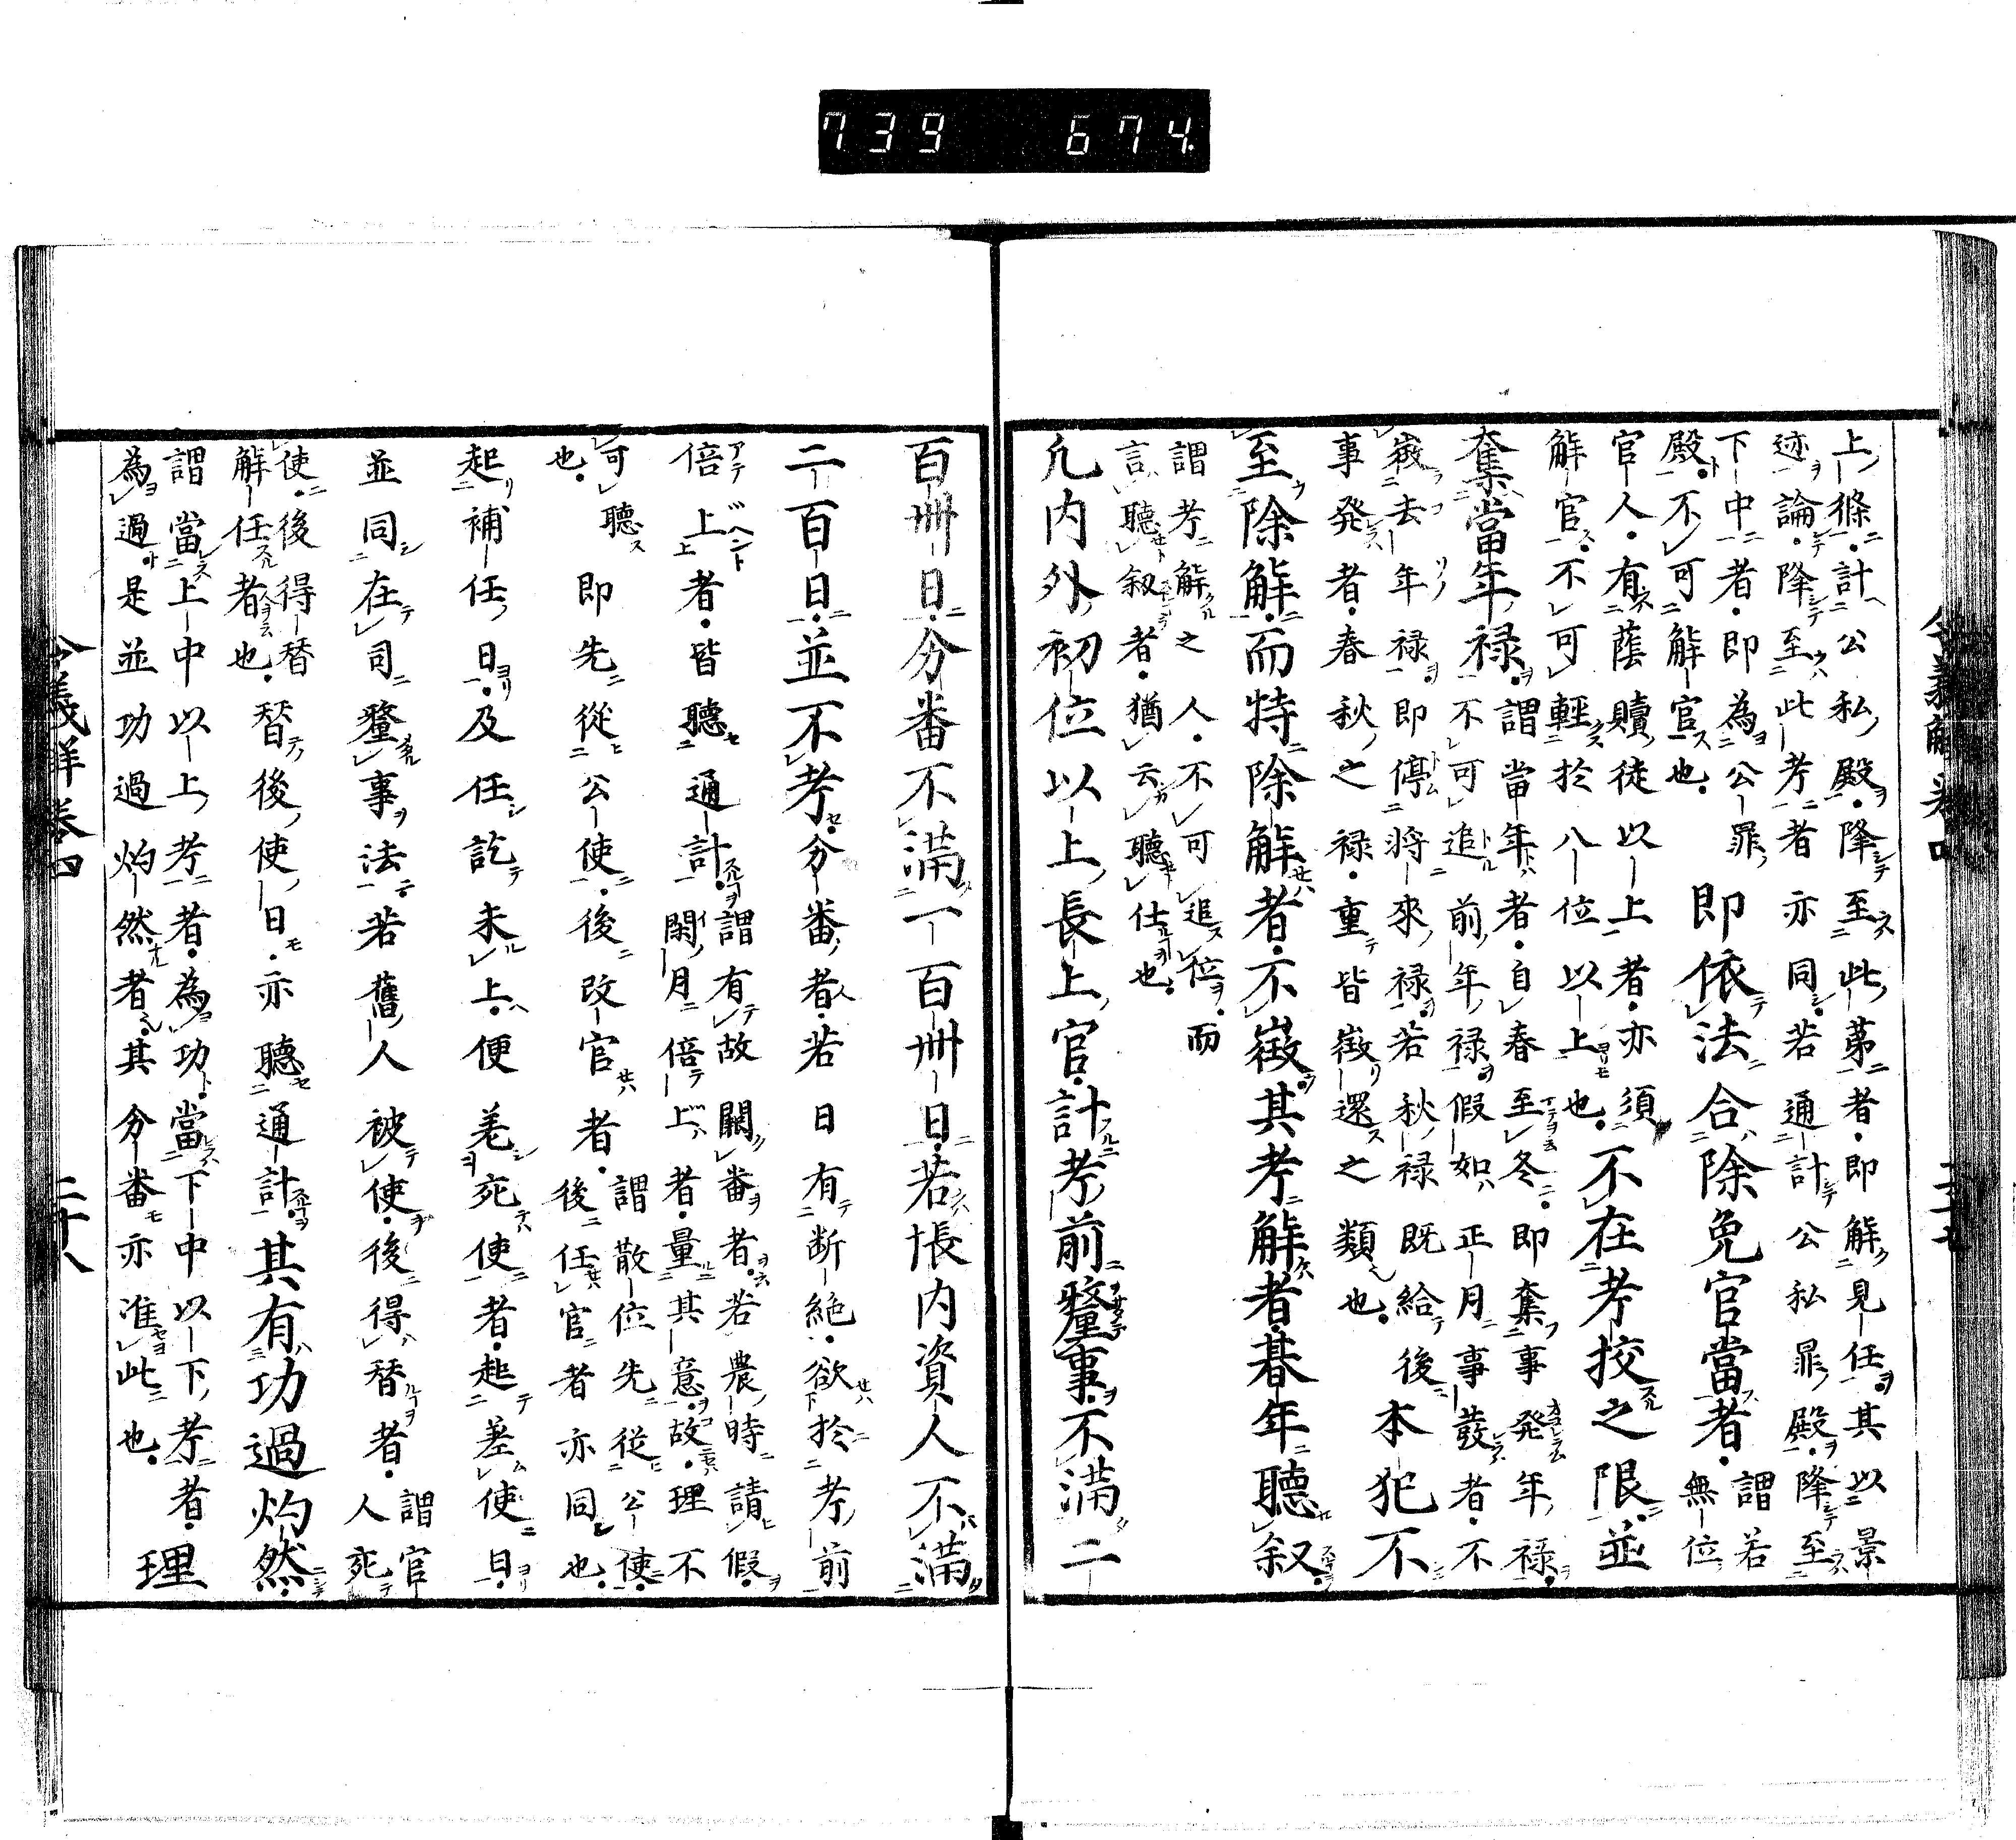 739 674
上條計公私殿降至此第者即解見任其以景
迹論降至此考者亦同若通計公私罪殿降至
下中者即為公罪
殿不可解官也
即依法合除免官當者
謂若
無位
官人有蔭贖徒以上者亦須
解官不可輕於八位以上也
不在考挍之限並
奪當年禄
謂當年者自春至冬即奪事発年禄
不可追前年禄假如正月事發者不
徴去年禄即停將來禄若秋禄既給後
事発者春秋之禄重皆徴還之類也
本犯不
至除解而特除解者不徴其考解者朞年聽叙
謂考解之人不可追倍而
言聽叙者猶云聽仕也
凡内外初位以上長上官計考前釐事不滿二
百卌日分番不滿一百卌日若帳内資人不滿
二百日並不考分番者若日有断絶欲於考前
倍上者皆聽通計
謂有故闕番者若農時請假
閑月倍上者量其意故理不
可聽
也
即先從公使後改官者
謂散位先從公使
後任官者亦同也
起補任日及任訖未上便差死使者起差使日
並同在司釐事法若舊人被使後得替者
謂官
人死
使後得替
解任者也
替後使日亦聽通計其有功過灼然
謂當上中以上考者為功當下中以下考者
為過是並功過灼然者其分番亦准此也
理
二十八